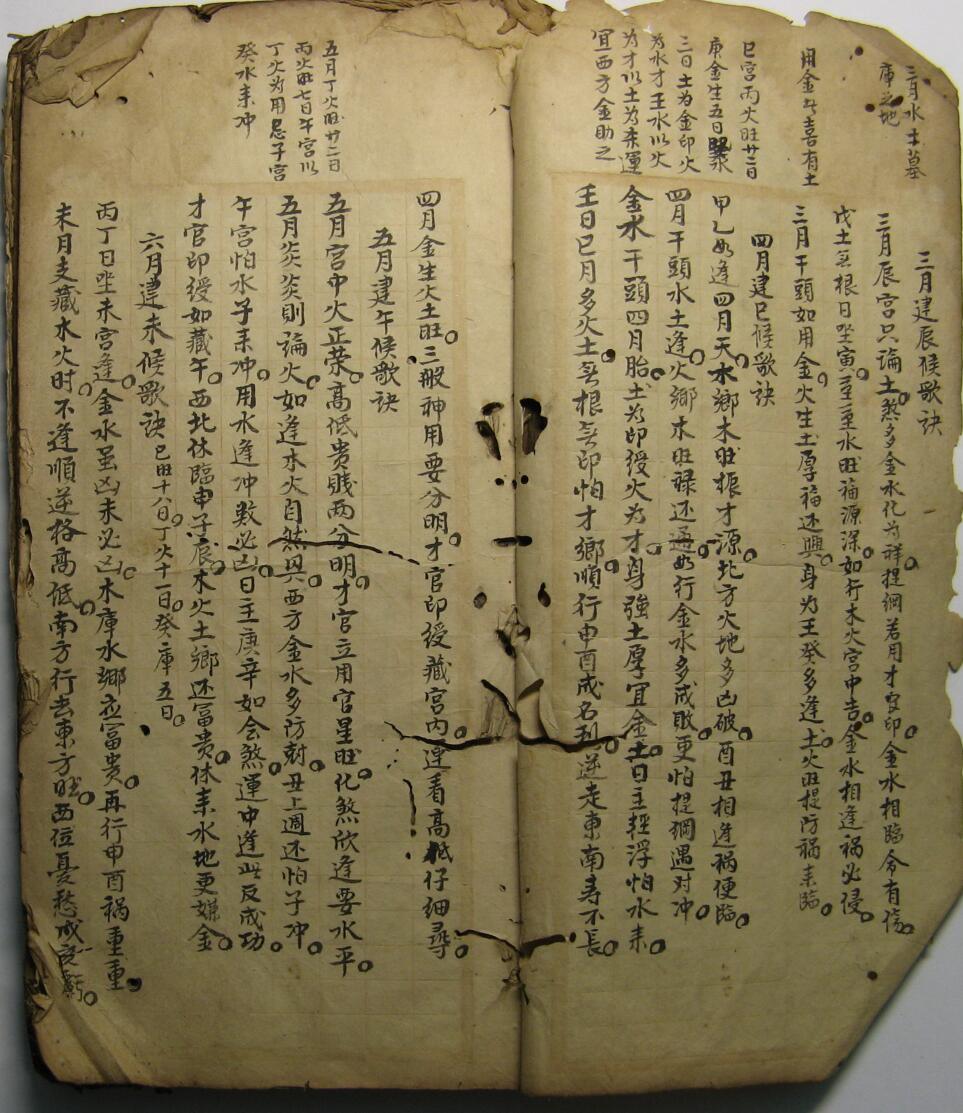 三月水土墓
庫之地
用金生喜有土
巳宮丙火旺廿二日
庚金生五日
三日土為金印火
為水才壬水以火
為才以土為未運
宜西方金助之
三月建辰候歌訣
三月辰宮只論土煞多金水化為祥提綱若用才官印金水相臨命有傷
戊土無根日坐寅至重重水旺福源深如行木火宮中吉金水相逢禍必侵
三月干頭如用金火生土厚福还興身为王癸多逢土火旺提防禍来臨
四月建巳候歌訣
甲乙如逢四月天水鄉木旺振才源北方火地多凶破酉丑相逢禍便臨
四月干頭水土逢火鄉木旺禄还通如行金水多成敗更怕提綱遇对冲
金水干頭四月胎土为印綬火为才身強土厚宜金土日主輕浮怕水来
壬日巳月多火土無根無印怕才鄉順行申酉成名利逆走東南寿不長
五月丁火旺廿二日
丙火旺七日午宮以
丁火为用忌子宮
癸水来冲
四月金生火土旺三般神用要分明才官印綬藏宮内運看高低仔细尋
五月建午候歌訣
五月宮中火正荣高低贵賎两分明才官立用官星旺化煞欣逢要水平
五月炎炎則論火如逢木火自然興西方金水多防尅丑上週还怕子冲
午宮怕水子来冲用水逢冲数必凶日主庚辛如会煞運中逢此反成功
才官印綬如藏午西北休臨申子辰木火土鄉还富贵休来水地更嫌金
六月建未候歌訣 己田十八日丁火十一日癸庫五日
丙丁日坐未宮逢金水虽凶未必凶木庫水鄉应富贵再行申酉禍重重
未月支藏水火时不逢順逆格高低南方行去東方旺西位憂愁成